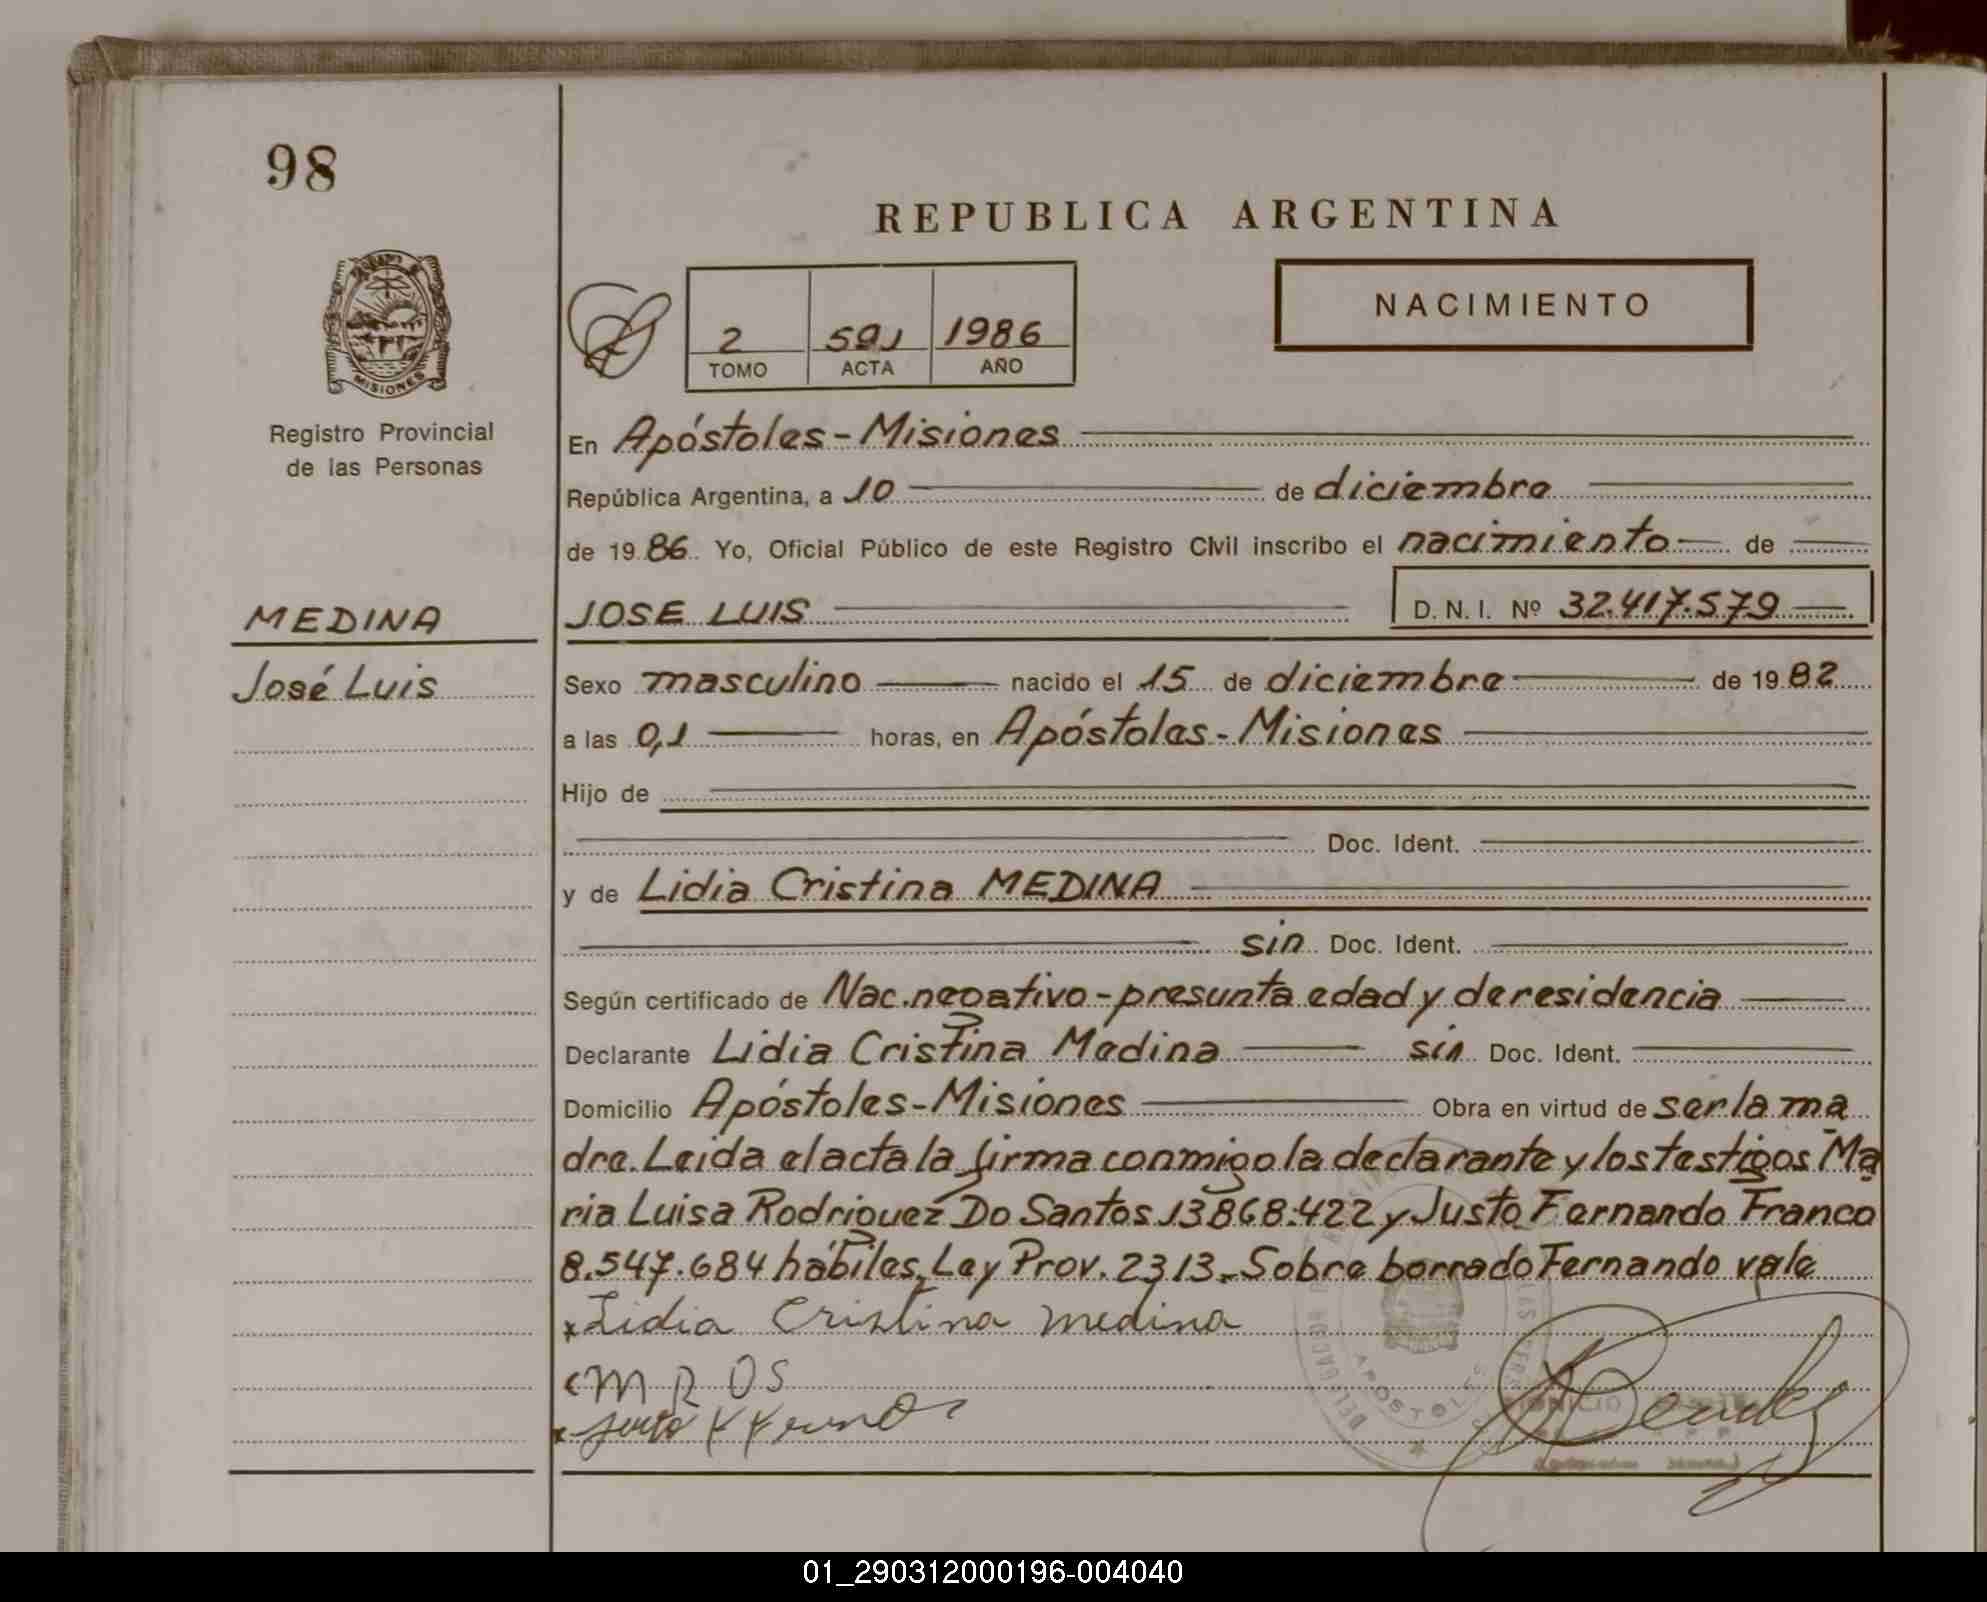 98
REPUBLICA ARGENTINA
NACIMIENTO
2 591 1986
TOMO ACTA AÑO
MISIONES
Registro Provincial
de las Personas
En Apóstoles - Misiones
República Argentina, a 10 de diciembre
de 19 86 Yo, Oficial Público de este Registro Civil inscribo el nacimiento de
MEDINA
José Luis
JOSE LUIS D. N. I. Nº 32.417.579
Sexo masculino nacido el 15 de diciembre de 19 82
a las 0,1 horas, en Apóstoles - Misiones
Hijo de
Doc. Ident.
y de Lidia Cristina MEDINA
sin Doc. Ident.
Según certificado de Nac. negativo - presunta edad y de residencia
Declarante Lidia Cristina Medina sin Doc. Ident.
Domicilio Apóstoles - Misiones Obra en virtud de ser la ma
dre. Leida el acta la firma conmigo la declarante y los testigos Ma
ria Luisa Rodriguez Do Santos 13868.422 y Justo Fernando Franco
8.547.684 hábiles, Ley Prov. 2313. Sobre borrado Fernando vale
Lidia Cristina Medina
M R D S
APOSTOLES
01_290312000196-004040